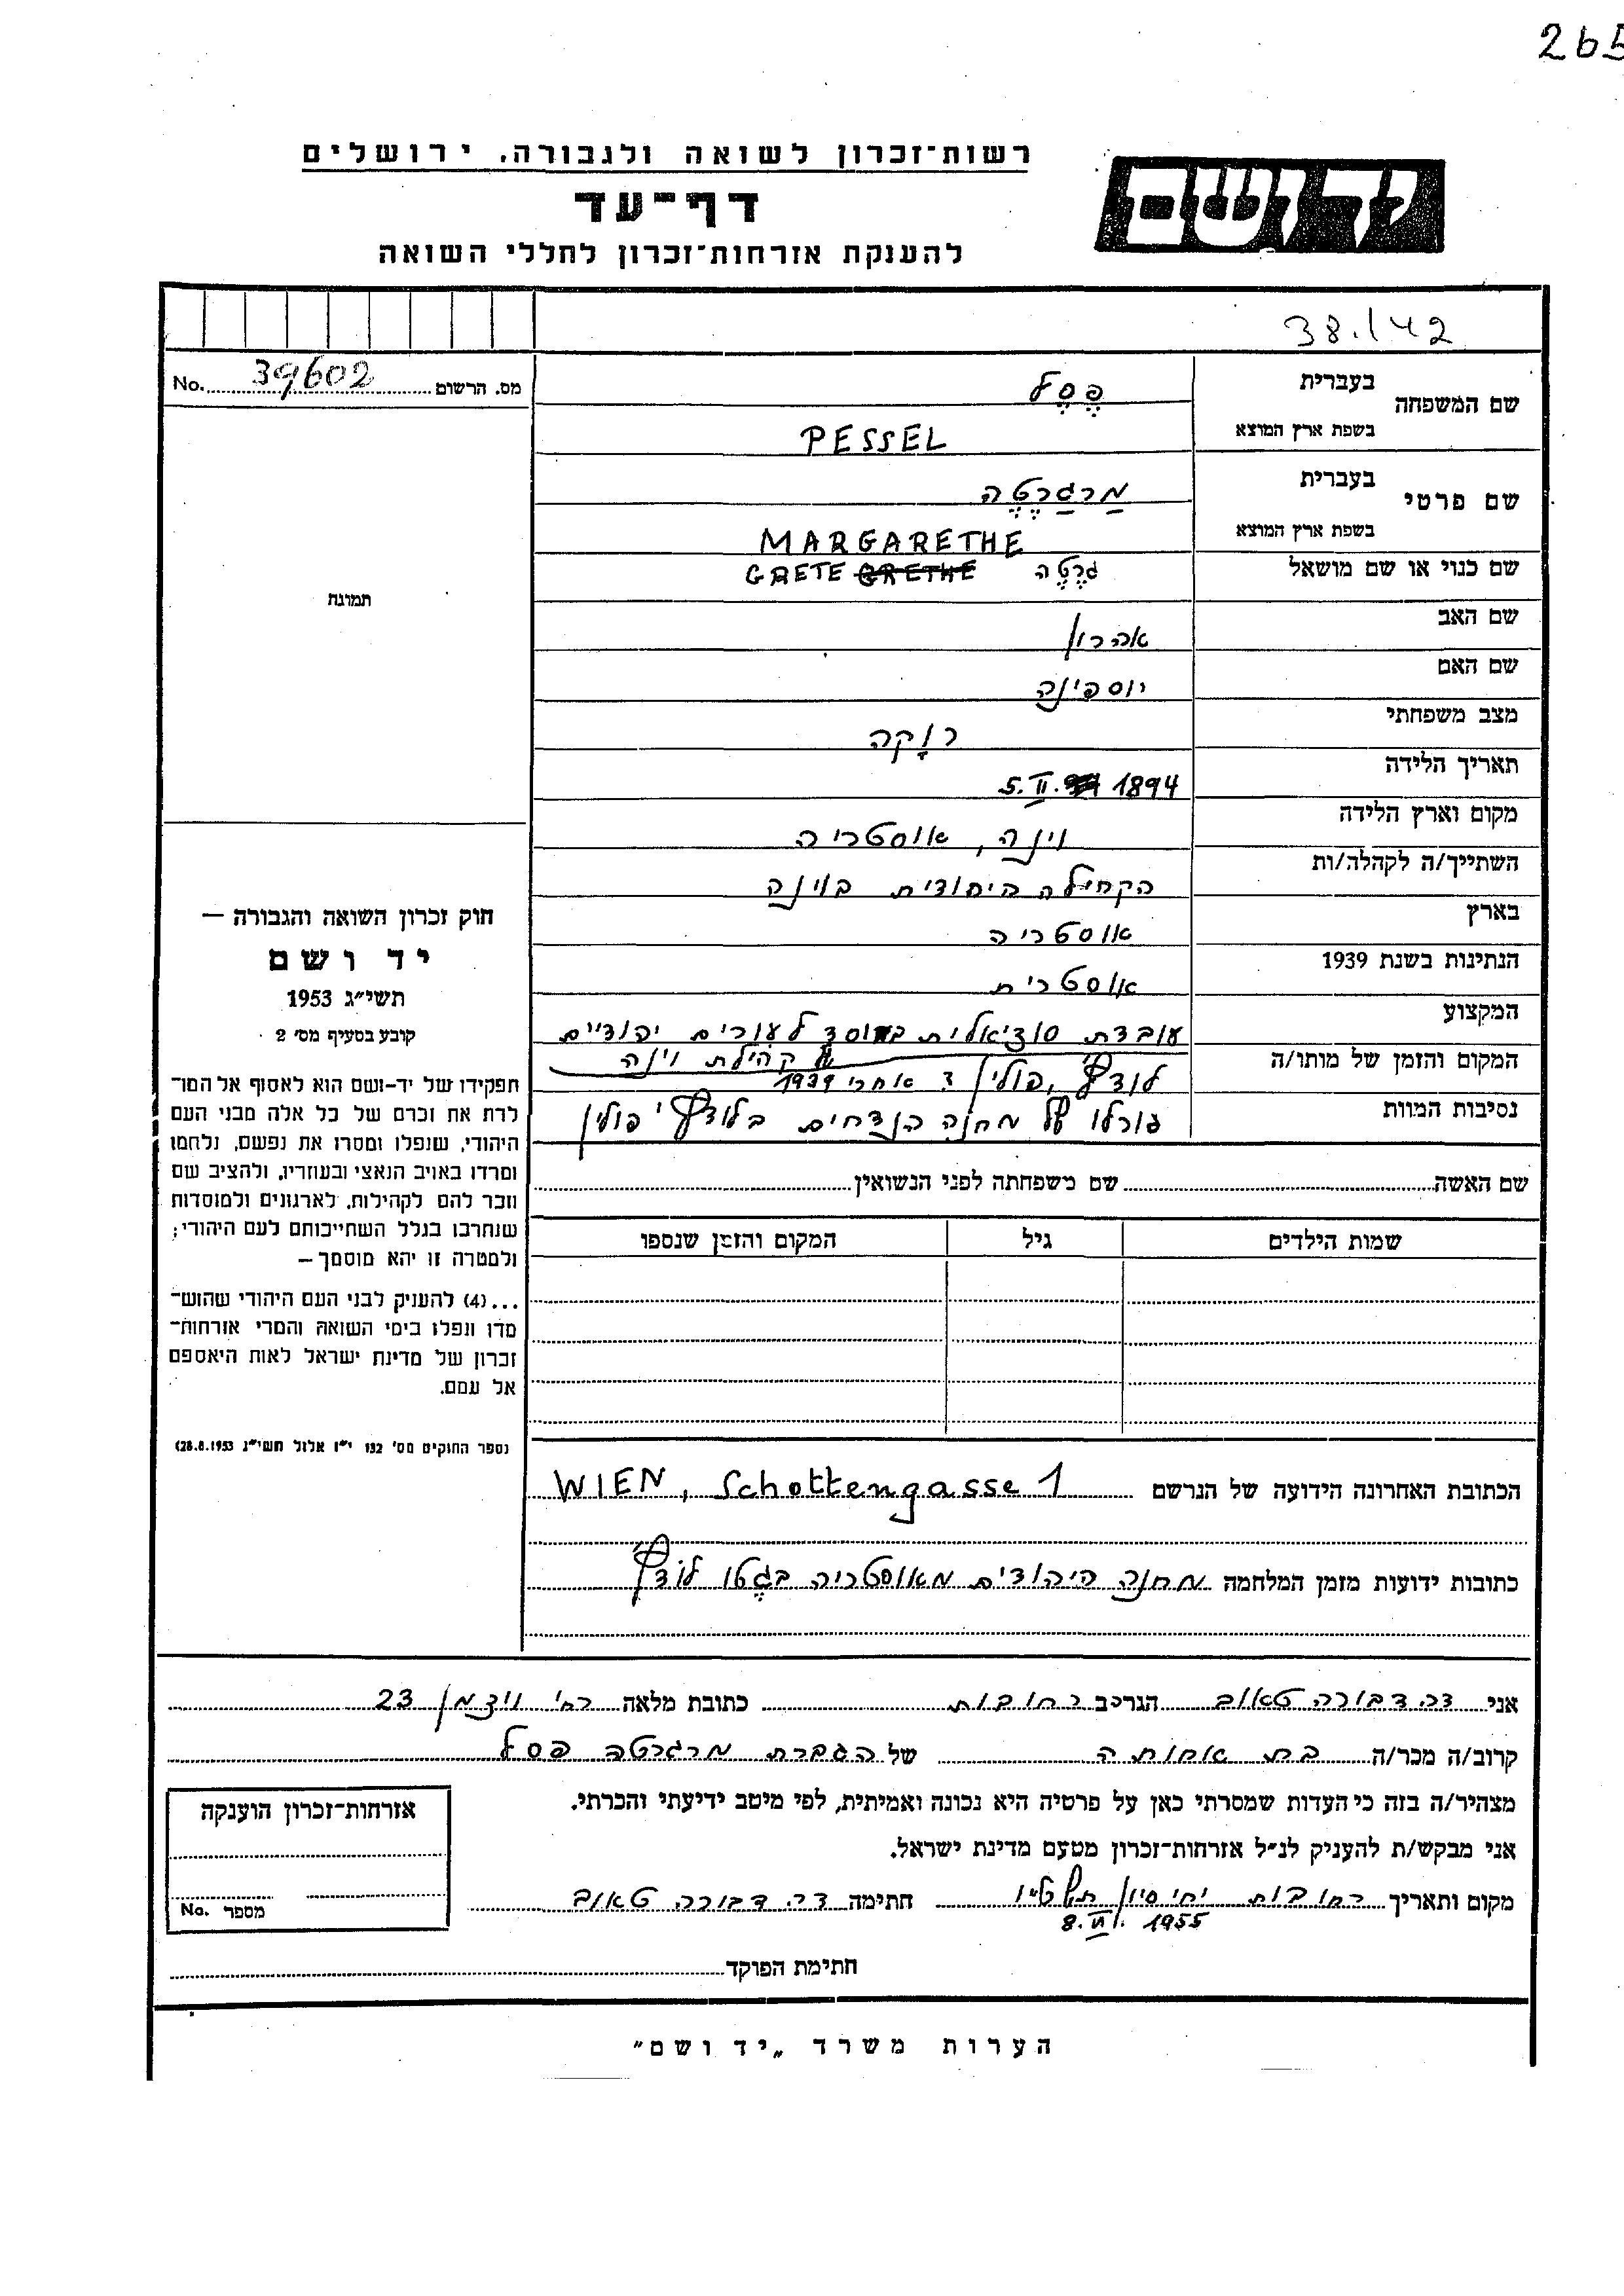 265
רשות־זכרון לשואה ולגבורה, ירושלים
יד ושם
דף־עד
להענקת אזרחות־זכרון לחללי השואה
38.142
מס. הרשום 39602 No.
שם המשפחה בעברית פֶסֶל
בשפת ארץ המוצא PESSEL
שם פרטי בעברית מַרגַרֶטֶה
בשפת ארץ המוצא MARGARETHE
שם כנוי או שם מושאל גרֶטֶה GRETE GRETHE
שם האב אהרון
שם האם יוספינה
מצב משפחתי רוָקה
תאריך הלידה 5.II. 1894
מקום וארץ הלידה וינה, אוסטריה
השתייך/ה לקהלה/ות הקהילה היהודית בוינה
בארץ אוסטריה
הנתינות בשנת 1939 אוסטרית
המקצוע עובדת סוציאלית במוסד לעורים יהודיים
קהילת וינה
המקום והזמן של מותו/ה לודץ', פולין ? אחרי 1939
נסיבות המוות גורלו של מחנה הנדחים בלודץ' פולין
שם האשה שם משפחתה לפני הנשואין
שמות הילדים גיל המקום והזמן שנספו
תמונה
חוק זכרון השואה והגבורה —
יד ושם
תשי״ג 1953
קובע בסעיף מס׳ 2
תפקידו של יד־ושם הוא לאסוף אל המו־
לדת את זכרם של כל אלה מבני העם
היהודי, שנפלו ומסרו את נפשם, נלחמו
ומרדו באויב הנאצי ובעוזריו, ולהציב שם
וזכר להם לקהילות, לארגונים ולמוסדות
שנחרבו בגלל השתייכותם לעם היהודי;
ולמטרה זו יהא מוסמך —
...(4) להעניק לבני העם היהודי שהוש־
מדו ונפלו בימי השואה והמרי אזרחות־
זכרון של מדינת ישראל לאות היאספם
אל עמם.
(ספר החוקים מס׳ 132 י״ז אלול תשי״ג 28.8.1953)
הכתובת האחרונה הידועה של הנרשם WIEN, Schottengasse 1
כתובות ידועות מזמן המלחמה מחנה היהודים מאוסטריה בגֶטו לודץ'
אני דר. דבורה טאוב הגר/ב רחובות כתובת מלאה רח' ויצמן 23
קרוב/ה מכר/ה בת אחותה של הגברת מרגרטה פסל
מצהיר/ה בזה כי העדות שמסרתי כאן על פרטיה היא נכונה ואמיתית, לפי מיטב ידיעתי והכרתי.
אני מבקש/ת להעניק לנ״ל אזרחות־זכרון מטעם מדינת ישראל.
מקום ותאריך רחובות יח' סיון תשט"ו חתימה דר. דבורה טאוב
8.VI. 1955
אזרחות־זכרון הוענקה
מספר No.
חתימת הפוקד
הערות משרד „יד ושם״